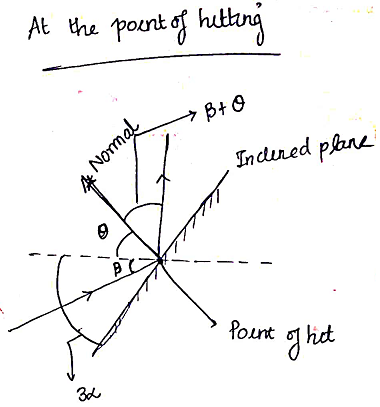 At the point of hitting
β+θ
Normal
Inclined plane
θ
β
Point of hit
3α